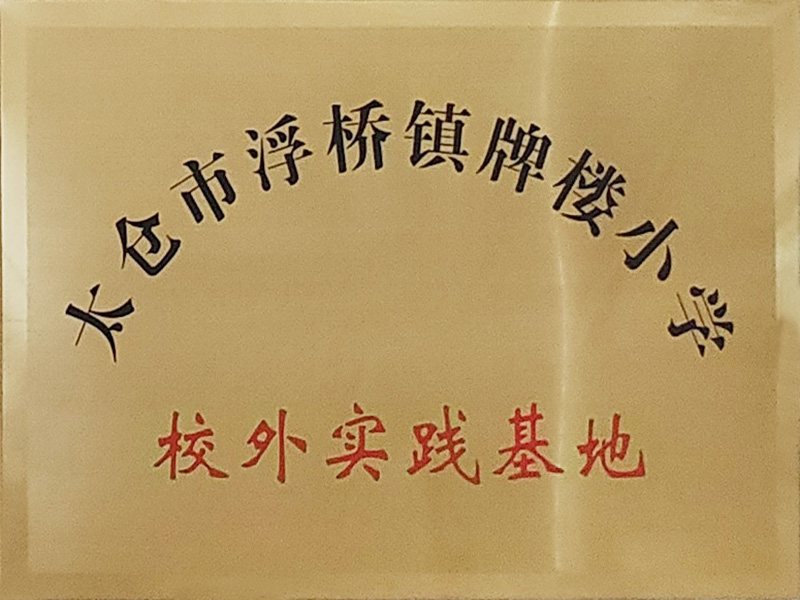 太仓市浮桥镇牌楼小学
校外实践基地